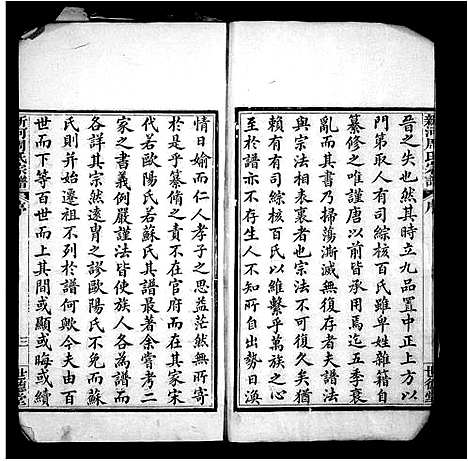 新河周氏宗譜
序
世德堂
晉之失也然其時立九品置中正上方以
門第取人有司綜核百氏雖卑姓雜籍自
纂修之唯謹唐以前皆承用焉迄五季衰
亂而其書乃掃蕩澌滅無復存者夫譜法
與宗法相表裏者也宗法不可復久矣猶
賴有有司綜核百氏以維繫乎萬族之心
於是譜亦不存生人不知所自出勢日渙
情日媮而仁人孝子之思益茫然無所寄
於是乎纂脩之責不在官府而在私家宋
代若歐陽氏若蘇氏其譜最著余嘗考二
家之書義例嚴謹法皆使族各為譜而
各詳其宗然遠冑之謬歐陽氏不免而蘇
氏則并始遷祖不列於譜何歟今夫由百
世而下等百世而上其間或顯或晦或續
新河周氏宗譜
序
三
世德堂